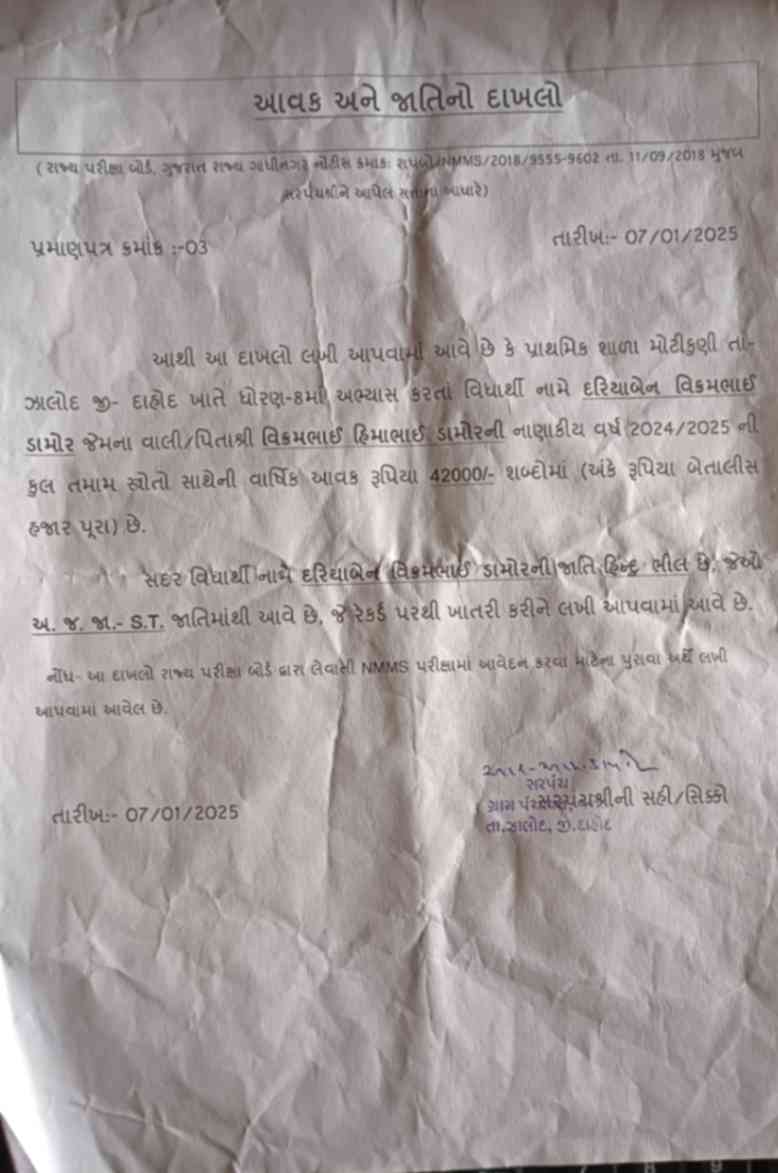 આવક અને જાતિનો દાખલો
( રાજ્ય પરીક્ષા બોર્ડ, ગુજરાત રાજ્ય ગાંધીનગર નોટીસ ક્રમાંક: રાપબો/NMMS/2018/9555-9602 તા. 11/09/2018 મુજબ
સરપંચશ્રીને આપેલ સત્તાના આધારે)
પ્રમાણપત્ર ક્રમાંક :-03
તારીખ:- 07/01/2025
આથી આ દાખલો લખી આપવામાં આવે છે કે પ્રાથમિક શાળા મોટીકુણી તા-
ઝાલોદ જી- દાહોદ ખાતે ધોરણ-8માં અભ્યાસ કરતાં વિધાર્થી નામે દરિયાબેન વિક્રમભાઈ
ડામોર જેમના વાલી/પિતાશ્રી વિક્રમભાઈ હિમાભાઈ ડામોરની નાણાકીય વર્ષ 2024/2025 ની
કુલ તમામ સ્ત્રોતો સાથેની વાર્ષિક આવક રૂપિયા 42000/- શબ્દોમાં (અંકે રૂપિયા બેતાલીસ
હજાર પૂરા) છે.
સદર વિધાર્થી નામે દરિયાબેન વિક્રમભાઈ ડામોરની જાતિ હિન્દુ ભીલ છે, જેઓ
અ. જ. જા.- S.T. જાતિમાંથી આવે છે, જે રેકર્ડ પરથી ખાતરી કરીને લખી આપવામાં આવે છે.
નોંધ- આ દાખલો રાજ્ય પરીક્ષા બોર્ડ દ્વારા લેવાતી NMMS પરીક્ષામાં આવેદન કરવા માટેના પુરાવા અર્થે લખી
આપવામાં આવેલ છે.
સરપંચ
તારીખ:- 07/01/2025
ગ્રામ સરપંચશ્રીની સહી/સિક્કો
તા.ઝાલોદ, જી.દાહોદ